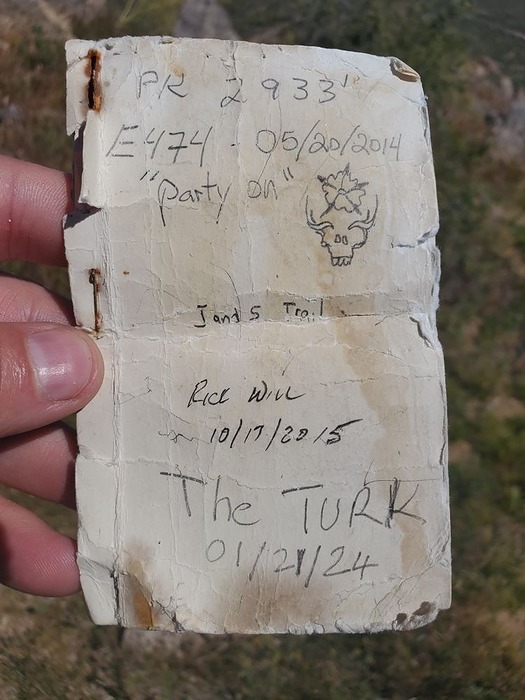 PK 2933'
E474 - 05/20/2014
"party on"
J and S Trail
Rick Will
10/17/2015
The TURK
01/21/24